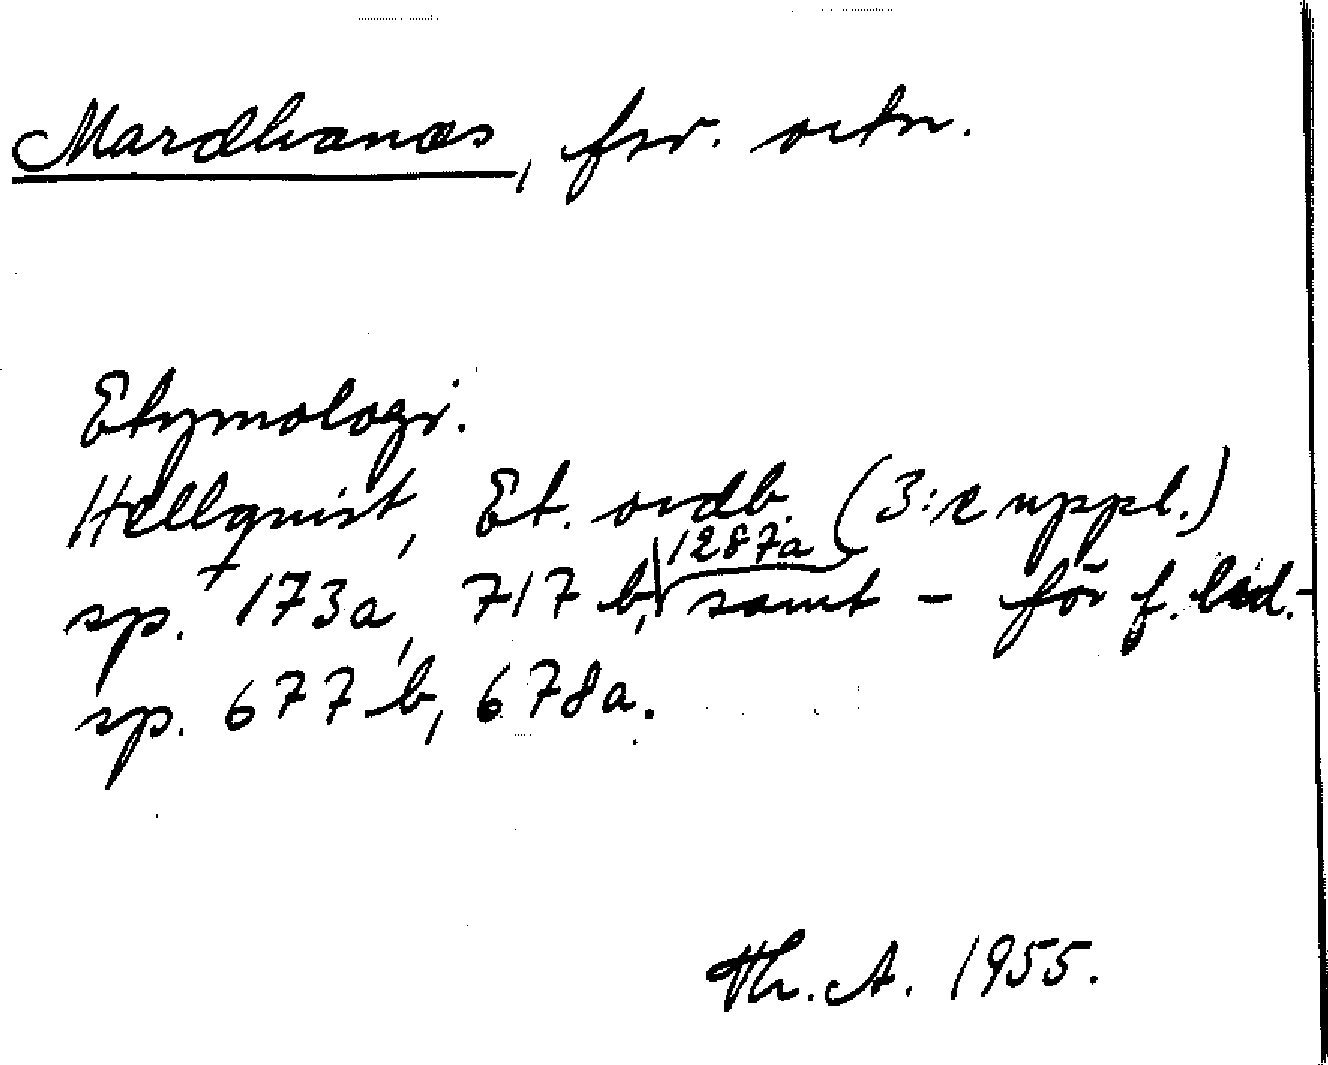 Mardhanæs, fsv. ortn.
Etymologi.
Hellquist, Et. ordb. (3:e uppl.)
sp. 173a, 717 b, 1287a samt – för f. led. –
sp. 677 b, 678a.
Th. A. 1955.